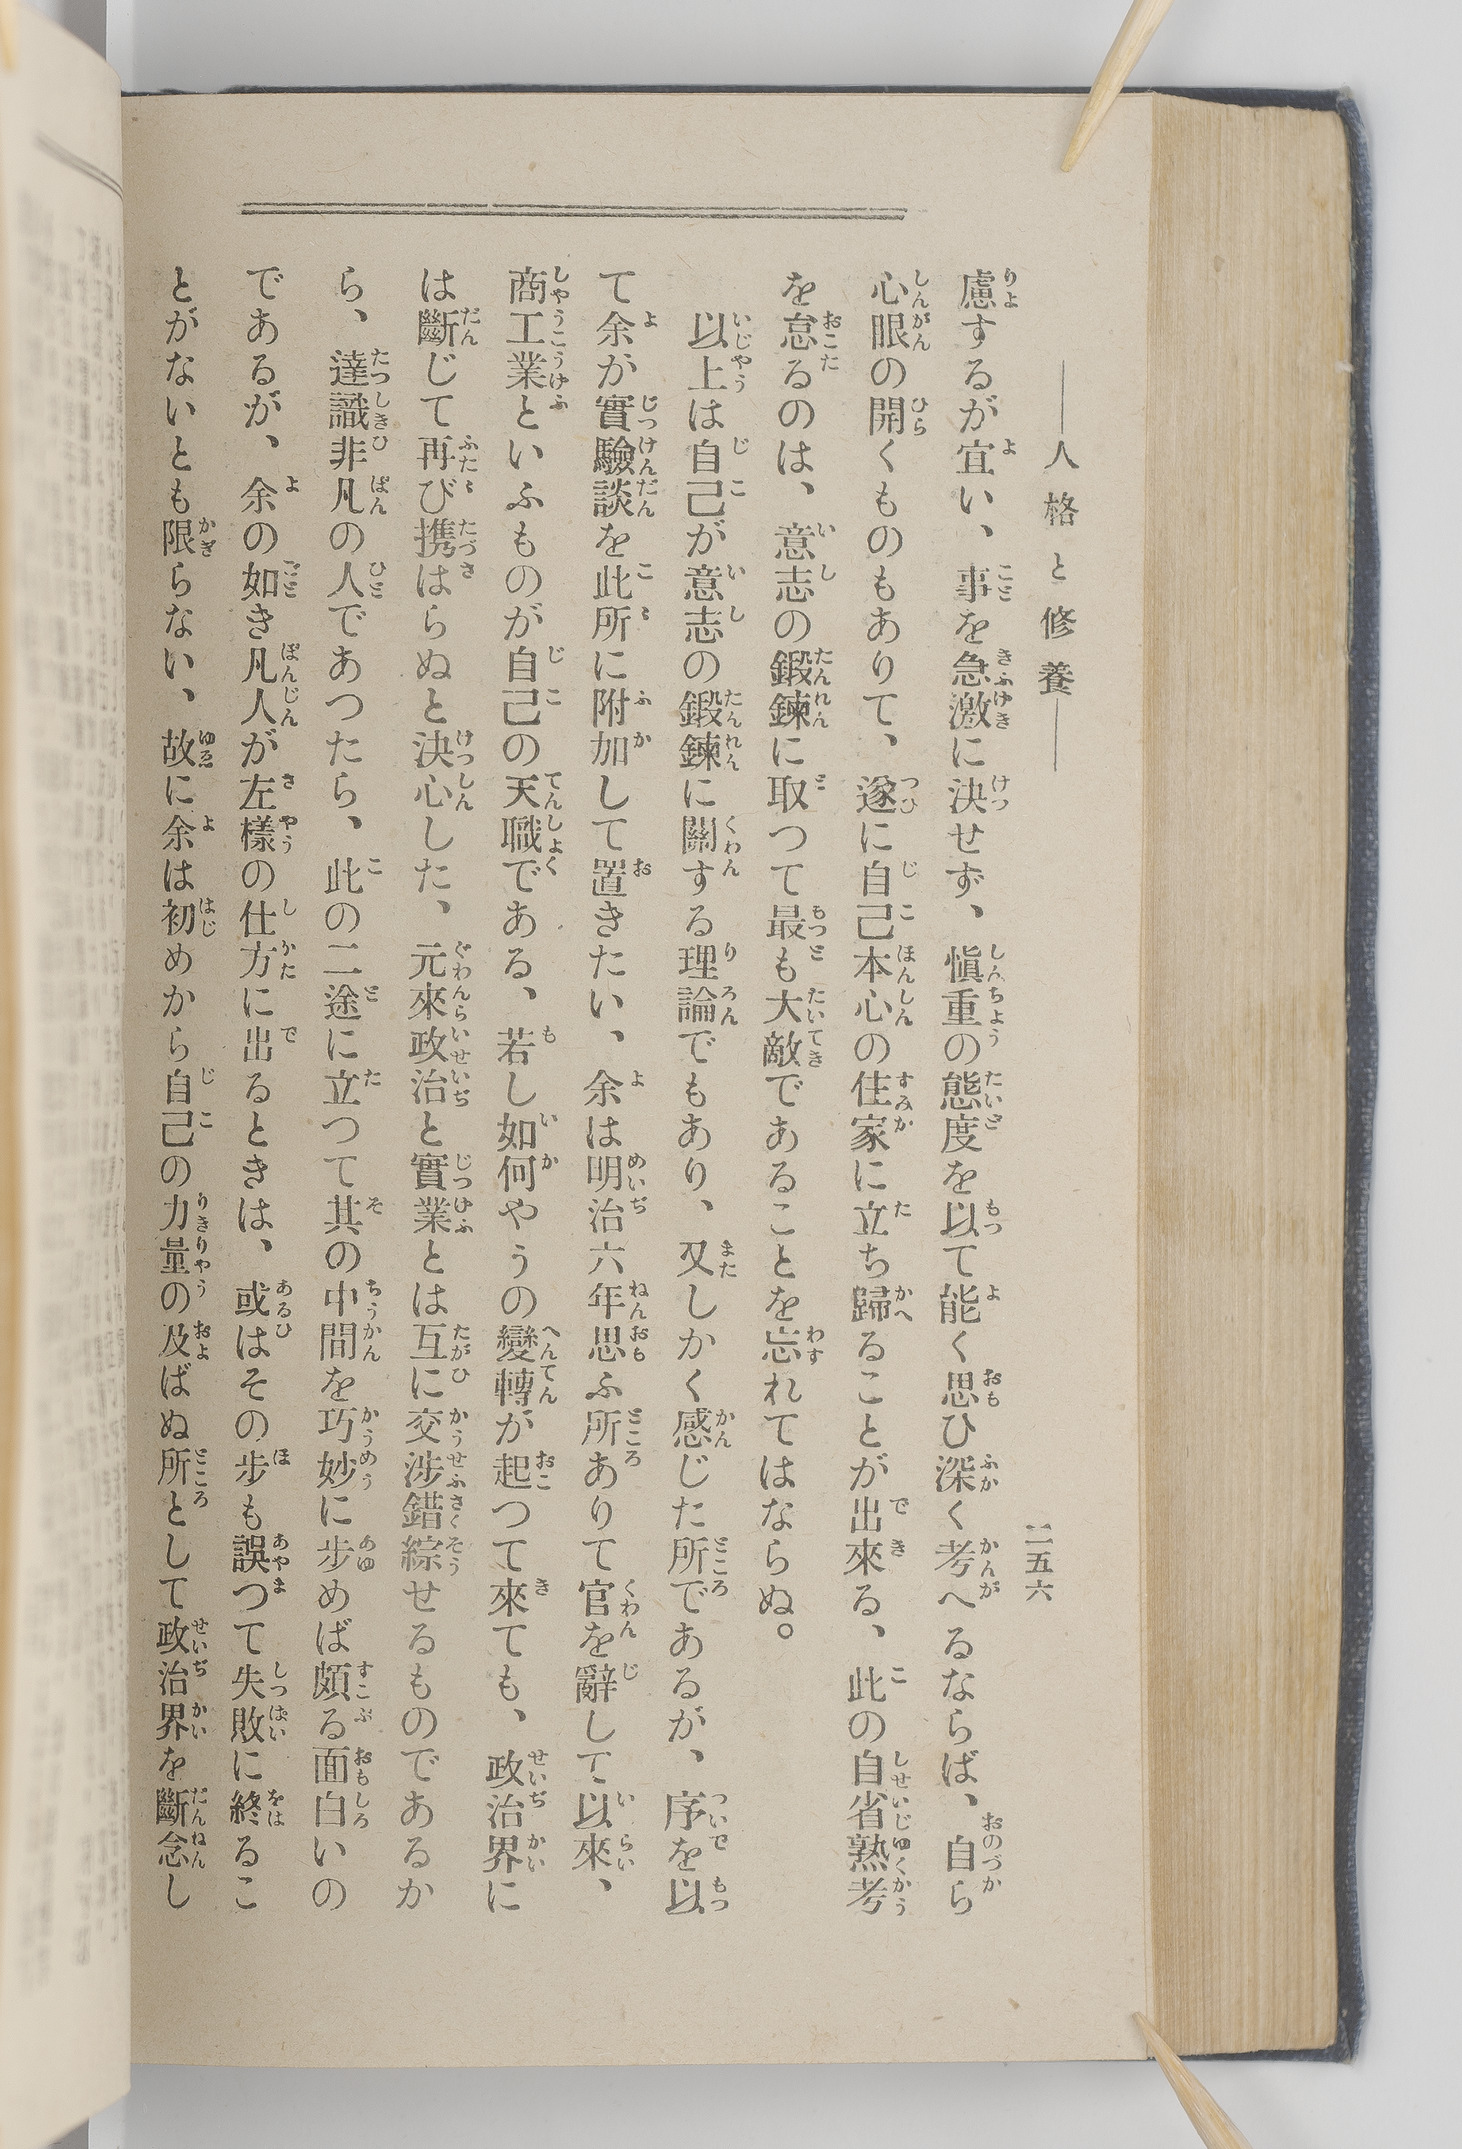 ――人格と修養――
二五六
慮するが宜い、事を急激に決せず、愼重の態度を以て能く思ひ深く考へるならば、自ら
心眼の開くものもありて、遂に自己本心の住家に立ち歸ることが出來る、此の自省熟考
を怠るのは、意志の鍛鍊に取つて最も大敵であることを忘れてはならぬ。
以上は自己が意志の鍛鍊に關する理論でもあり、又しかく感じた所であるが、序を以
て余が實驗談を此所に附加して置きたい、余は明治六年思ふ所ありて官を辭して以來、
商工業といふものが自己の天職である、若し如何やうの變轉が起つて來ても、政治界に
は斷じて再び携はらぬと決心した、元來政治と實業とは互に交涉錯綜せるものであるか
ら、達識非凡の人であつたら、此の二途に立つて其の中間を巧妙に步めば頗る面白いの
であるが、余の如き凡人が左樣の仕方に出るときは、或はその步も誤つて失敗に終るこ
とがないとも限らない、故に余は初めから自己の力量の及ばぬ所として政治界を斷念し